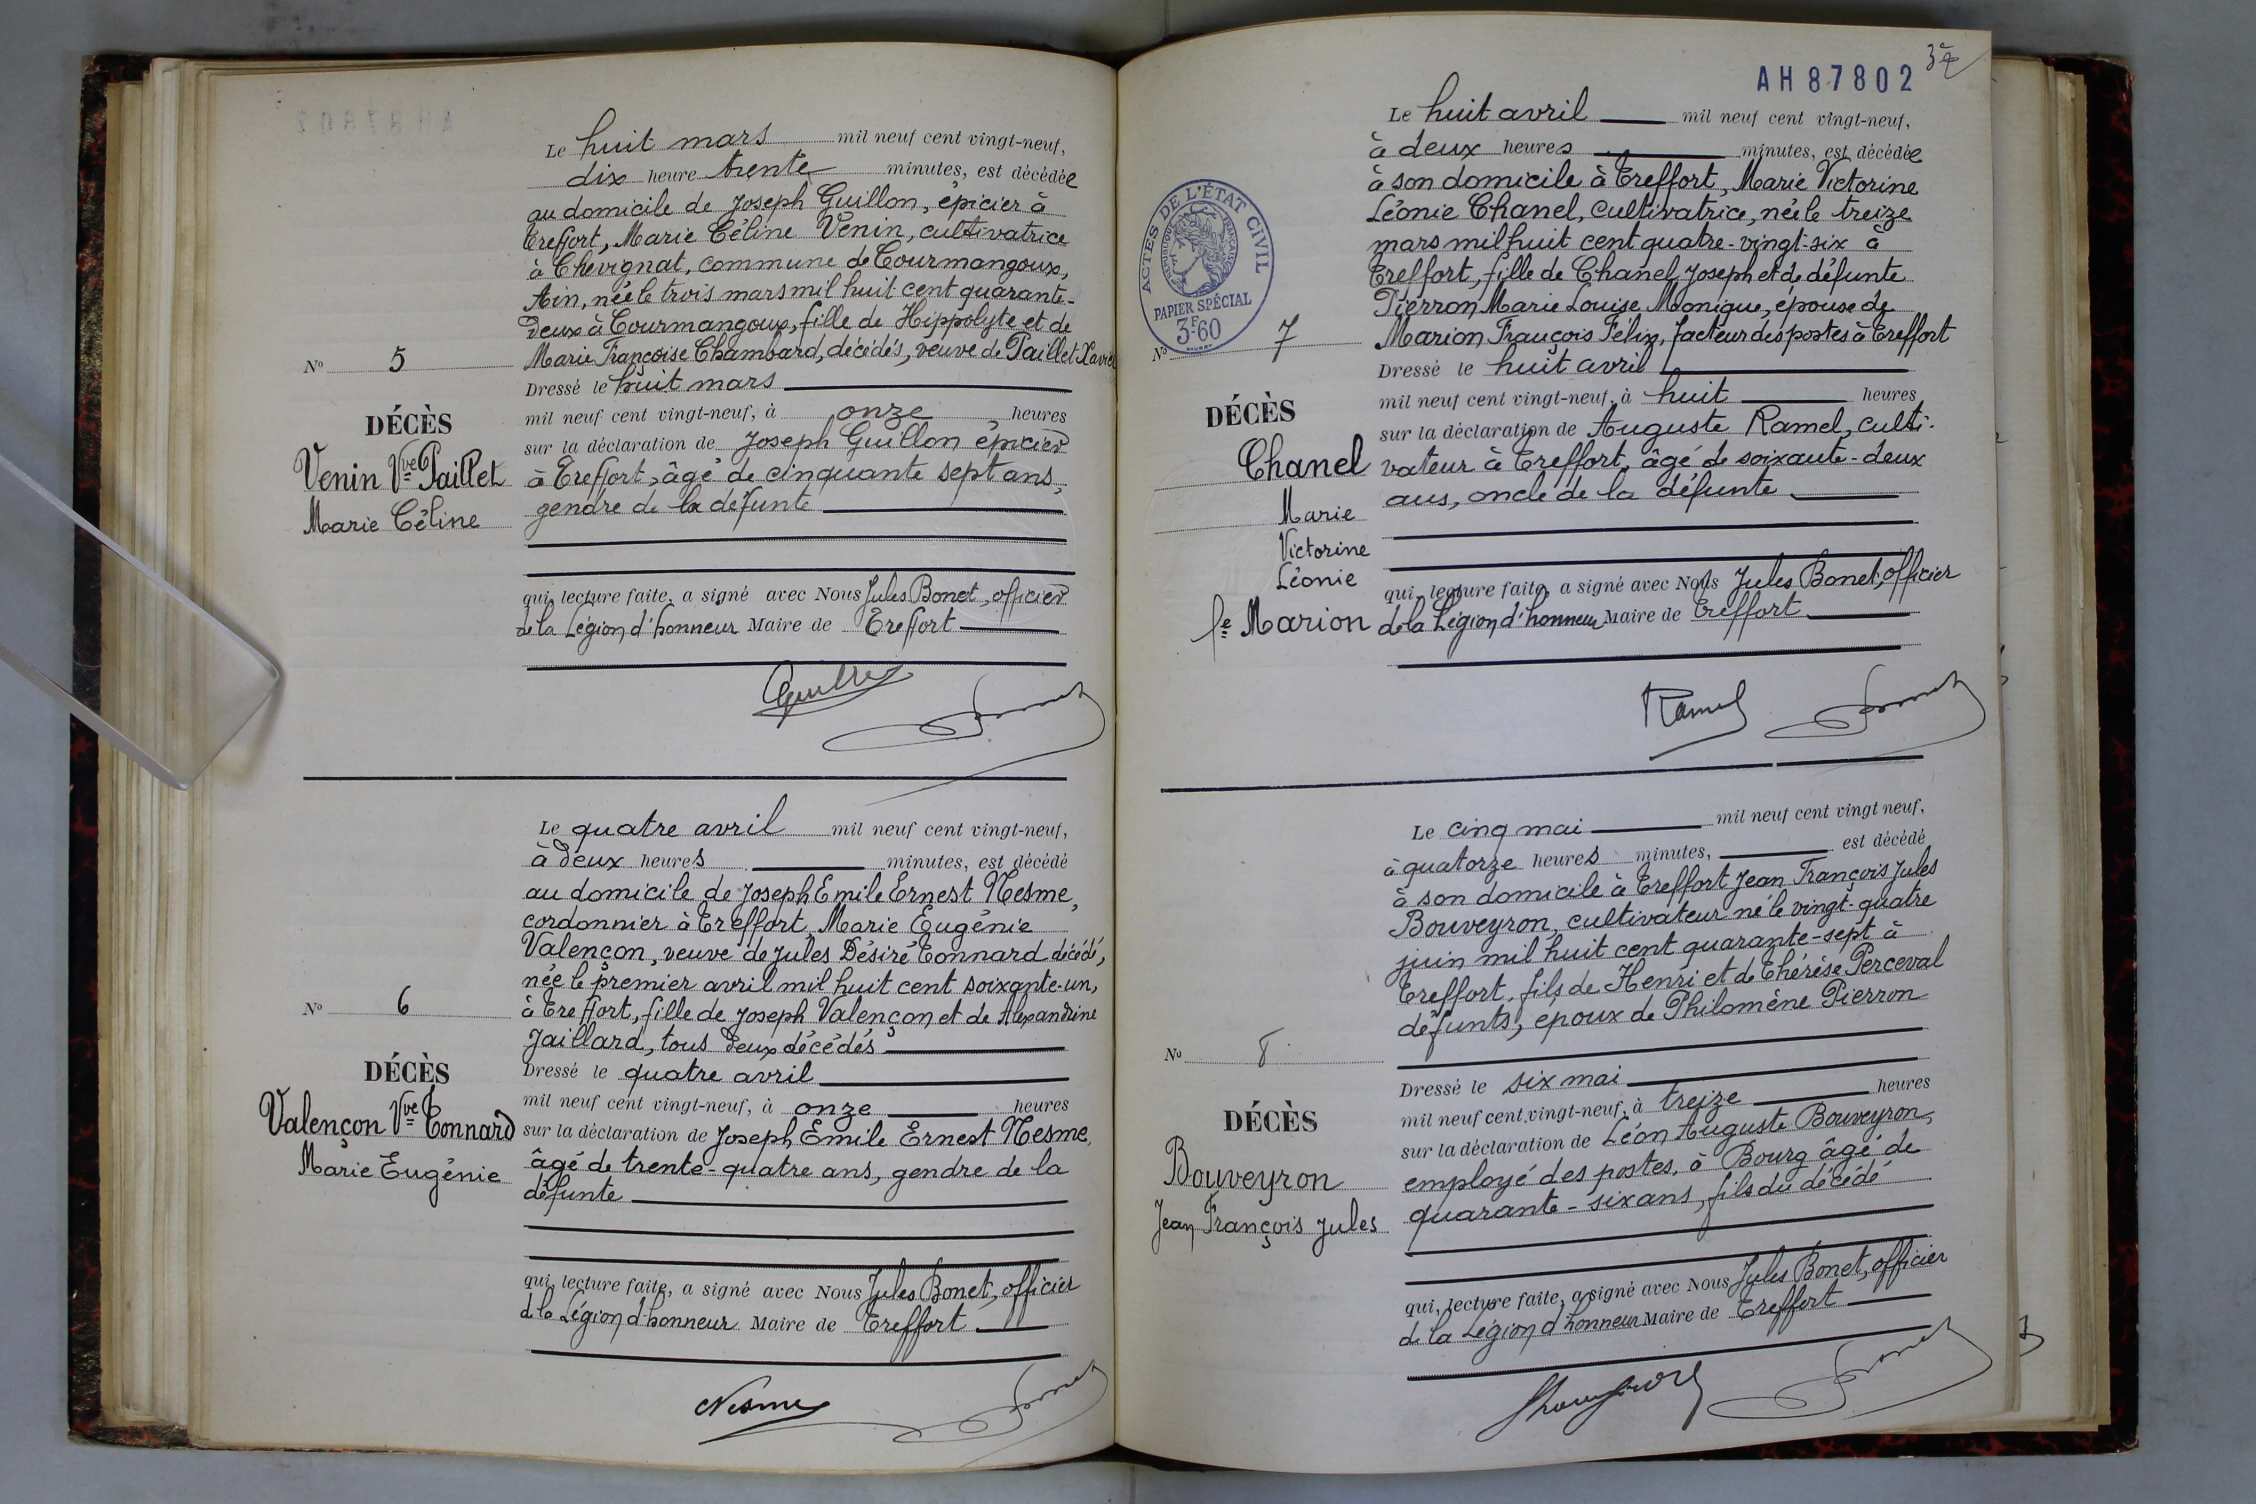 Le huit mars mil neuf cent vingt-neuf,
dix heure trente minutes, est décédée
au domicile de Joseph Guillon, épicier à
Treffort, Marie Céline Venin, cultivatrice
à Chevignat, commune de Courmangoux,
Ain, née le trois mars mil huit cent quarante-
deux à Courmangoux, fille de Hippolyte et de
Marie Françoise Chambard, décédés, veuve de Paillet Xavier
Dressé le huit mars
mil neuf cent vingt-neuf, à onze heures
sur la déclaration de Joseph Guillon épicier
à Treffort, âgé de cinquante sept ans,
gendre de la défunte
qui, lecture faite, a signé avec Nous Jules Bonet, officier
de la Légion d'honneur Maire de Treffort
No 5
DÉCÈS
Venin Vve Paillet
Marie Céline
Le quatre avril mil neuf cent vingt-neuf,
à deux heures minutes, est décédé
au domicile de Joseph Emile Ernest Nesme,
cordonnier à Treffort, Marie Eugénie
Valençon, veuve de Jules Désiré Tonnard décédé,
née le premier avril mil huit cent soixante-un,
à Treffort, fille de Joseph Valençon et de Alexandrine
Jaillard, tous deux décédés
Dressé le quatre avril
mil neuf cent vingt-neuf, à onze heures
sur la déclaration de Joseph Emile Ernest Nesme,
âgé de trente-quatre ans, gendre de la
défunte
qui, lecture faite, a signé avec Nous Jules Bonet, officier
de la Légion d'honneur Maire de Treffort
Nesme
No 6
DÉCÈS
Valençon Vve Tonnard
Marie Eugénie
AH87802
Le huit avril mil neuf cent vingt-neuf,
à deux heures minutes, est décédée
à son domicile à Treffort, Marie Victorine
Léonie Chanel, cultivatrice, née le treize
mars mil huit cent quatre-vingt-six à
Treffort, fille de Chanel Joseph et de défunte
Pierron Marie Louise Monique, épouse de
Marion François Félix, facteur des postes à Treffort
Dressé le huit avril
mil neuf cent vingt-neuf, à huit heures
sur la déclaration de Auguste Ramel, culti-
vateur à Treffort, âgé de soixante-deux
ans, oncle de la défunte
qui, lecture faite, a signé avec Nous Jules Bonet, officier
de la Légion d'honneur Maire de Treffort
Ramel
ACTES DE L'ÉTAT CIVIL
RÉPUBLIQUE FRANÇAISE
PAPIER SPÉCIAL
3F60
No 7
DÉCÈS
Chanel
Marie
Victorine
Léonie
fe Marion
Le cinq mai mil neuf cent vingt neuf,
à quatorze heures minutes, est décédé
à son domicile à Treffort Jean François Jules
Bouveyron, cultivateur né le vingt-quatre
juin mil huit cent quarante-sept à
Treffort, fils de Henri et de Thérèse Perceval
défunts, époux de Philomène Pierron
Dressé le six mai
mil neuf cent vingt-neuf, à treize heures
sur la déclaration de Léon Auguste Bouveyron,
employé des postes, à Bourg âgé de
quarante-six ans, fils du décédé
qui, lecture faite, a signé avec Nous Jules Bonet, officier
de la Légion d'honneur Maire de Treffort
No 8
DÉCÈS
Bouveyron
Jean François Jules